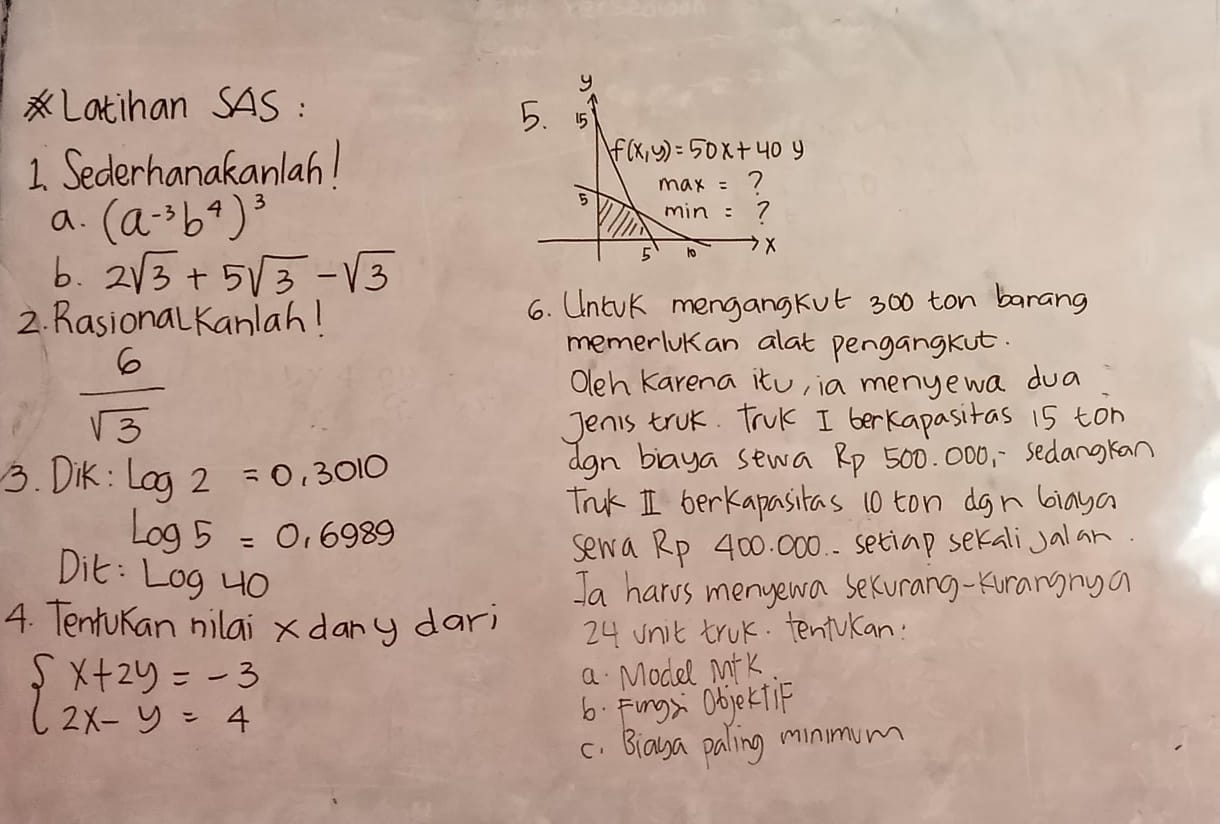 * Latihan SAS :
1. Sederhanakanlah!
a. (a⁻³b⁴)³
b. 2√3 + 5√3 - √3
2. Rasionalkanlah!
6
√3
3. Dik: Log 2 = 0,3010
Log 5 = 0,6989
Dit: Log 40
4. Tentukan nilai x dan y dari
{ x+2y = -3
2x- y = 4
5.
y
15
f(x,y) = 50x + 40 y
max = ?
5
min = ?
5 10 x
6. Untuk mengangkut 300 ton barang
memerlukan alat pengangkut.
Oleh karena itu, ia menyewa dua
Jenis truk. Truk I berkapasitas 15 ton
dgn biaya sewa Rp 500.000,- sedangkan
Truk II berkapasitas 10 ton dgn biaya
sewa Rp 400.000.- setiap sekali jalan.
Ia harus menyewa sekurang-kurangnya
24 unit truk. tentukan:
a. Model MTK
b. Fungsi Objektif
c. Biaya paling minimum